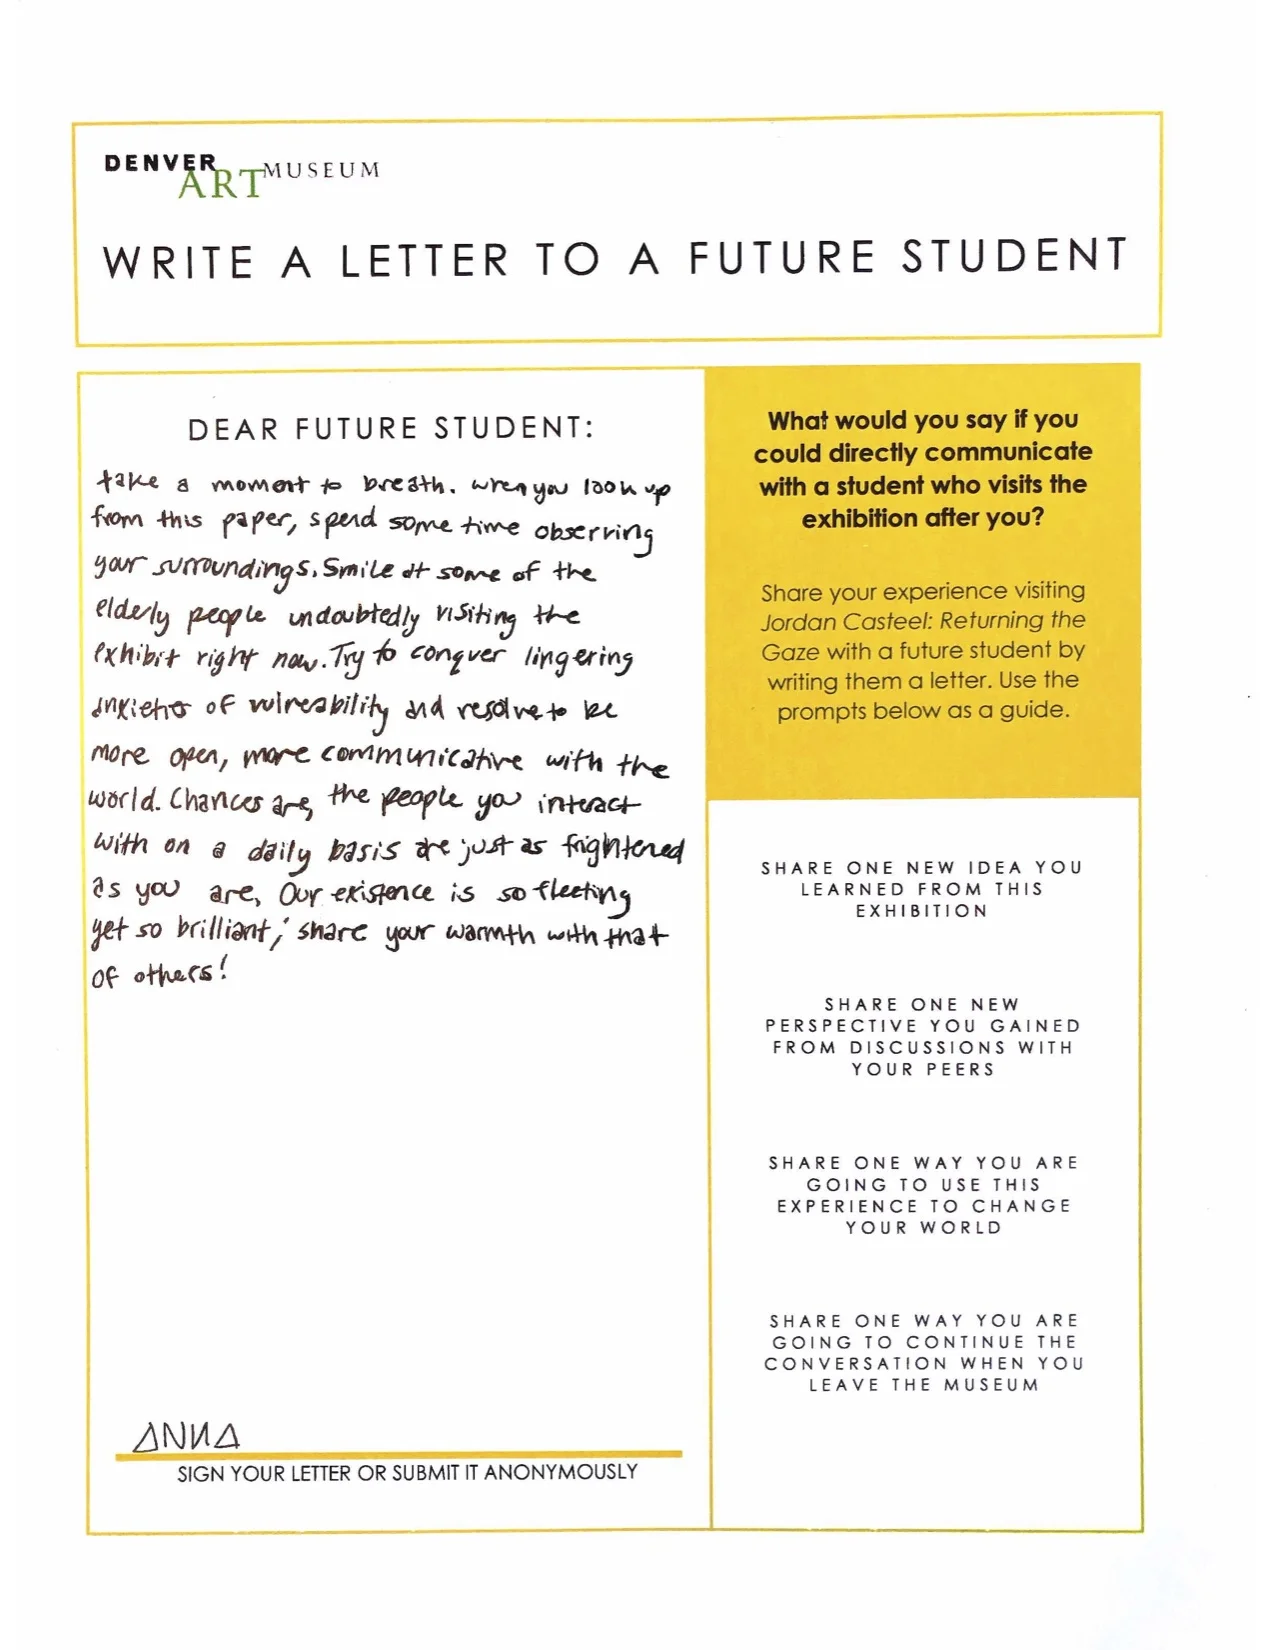 DENVER
ART MUSEUM
WRITE A LETTER TO A FUTURE STUDENT
DEAR FUTURE STUDENT:
take a moment to breath. when you look up
from this paper, spend some time observing
your surroundings. Smile at some of the
elderly people undoubtedly visiting the
exhibit right now. Try to conquer lingering
anxieties of vulnreability and resolve to be
more open, more communicative with the
world. Chances are, the people you interact
with on a daily basis are just as frightened
as you are, Our existence is so fleeting
yet so brilliant; share your warmth with that
of others!
ANNA
SIGN YOUR LETTER OR SUBMIT IT ANONYMOUSLY
What would you say if you
could directly communicate
with a student who visits the
exhibition after you?
Share your experience visiting
Jordan Casteel: Returning the
Gaze with a future student by
writing them a letter. Use the
prompts below as a guide.
SHARE ONE NEW IDEA YOU
LEARNED FROM THIS
EXHIBITION
SHARE ONE NEW
PERSPECTIVE YOU GAINED
FROM DISCUSSIONS WITH
YOUR PEERS
SHARE ONE WAY YOU ARE
GOING TO USE THIS
EXPERIENCE TO CHANGE
YOUR WORLD
SHARE ONE WAY YOU ARE
GOING TO CONTINUE THE
CONVERSATION WHEN YOU
LEAVE THE MUSEUM